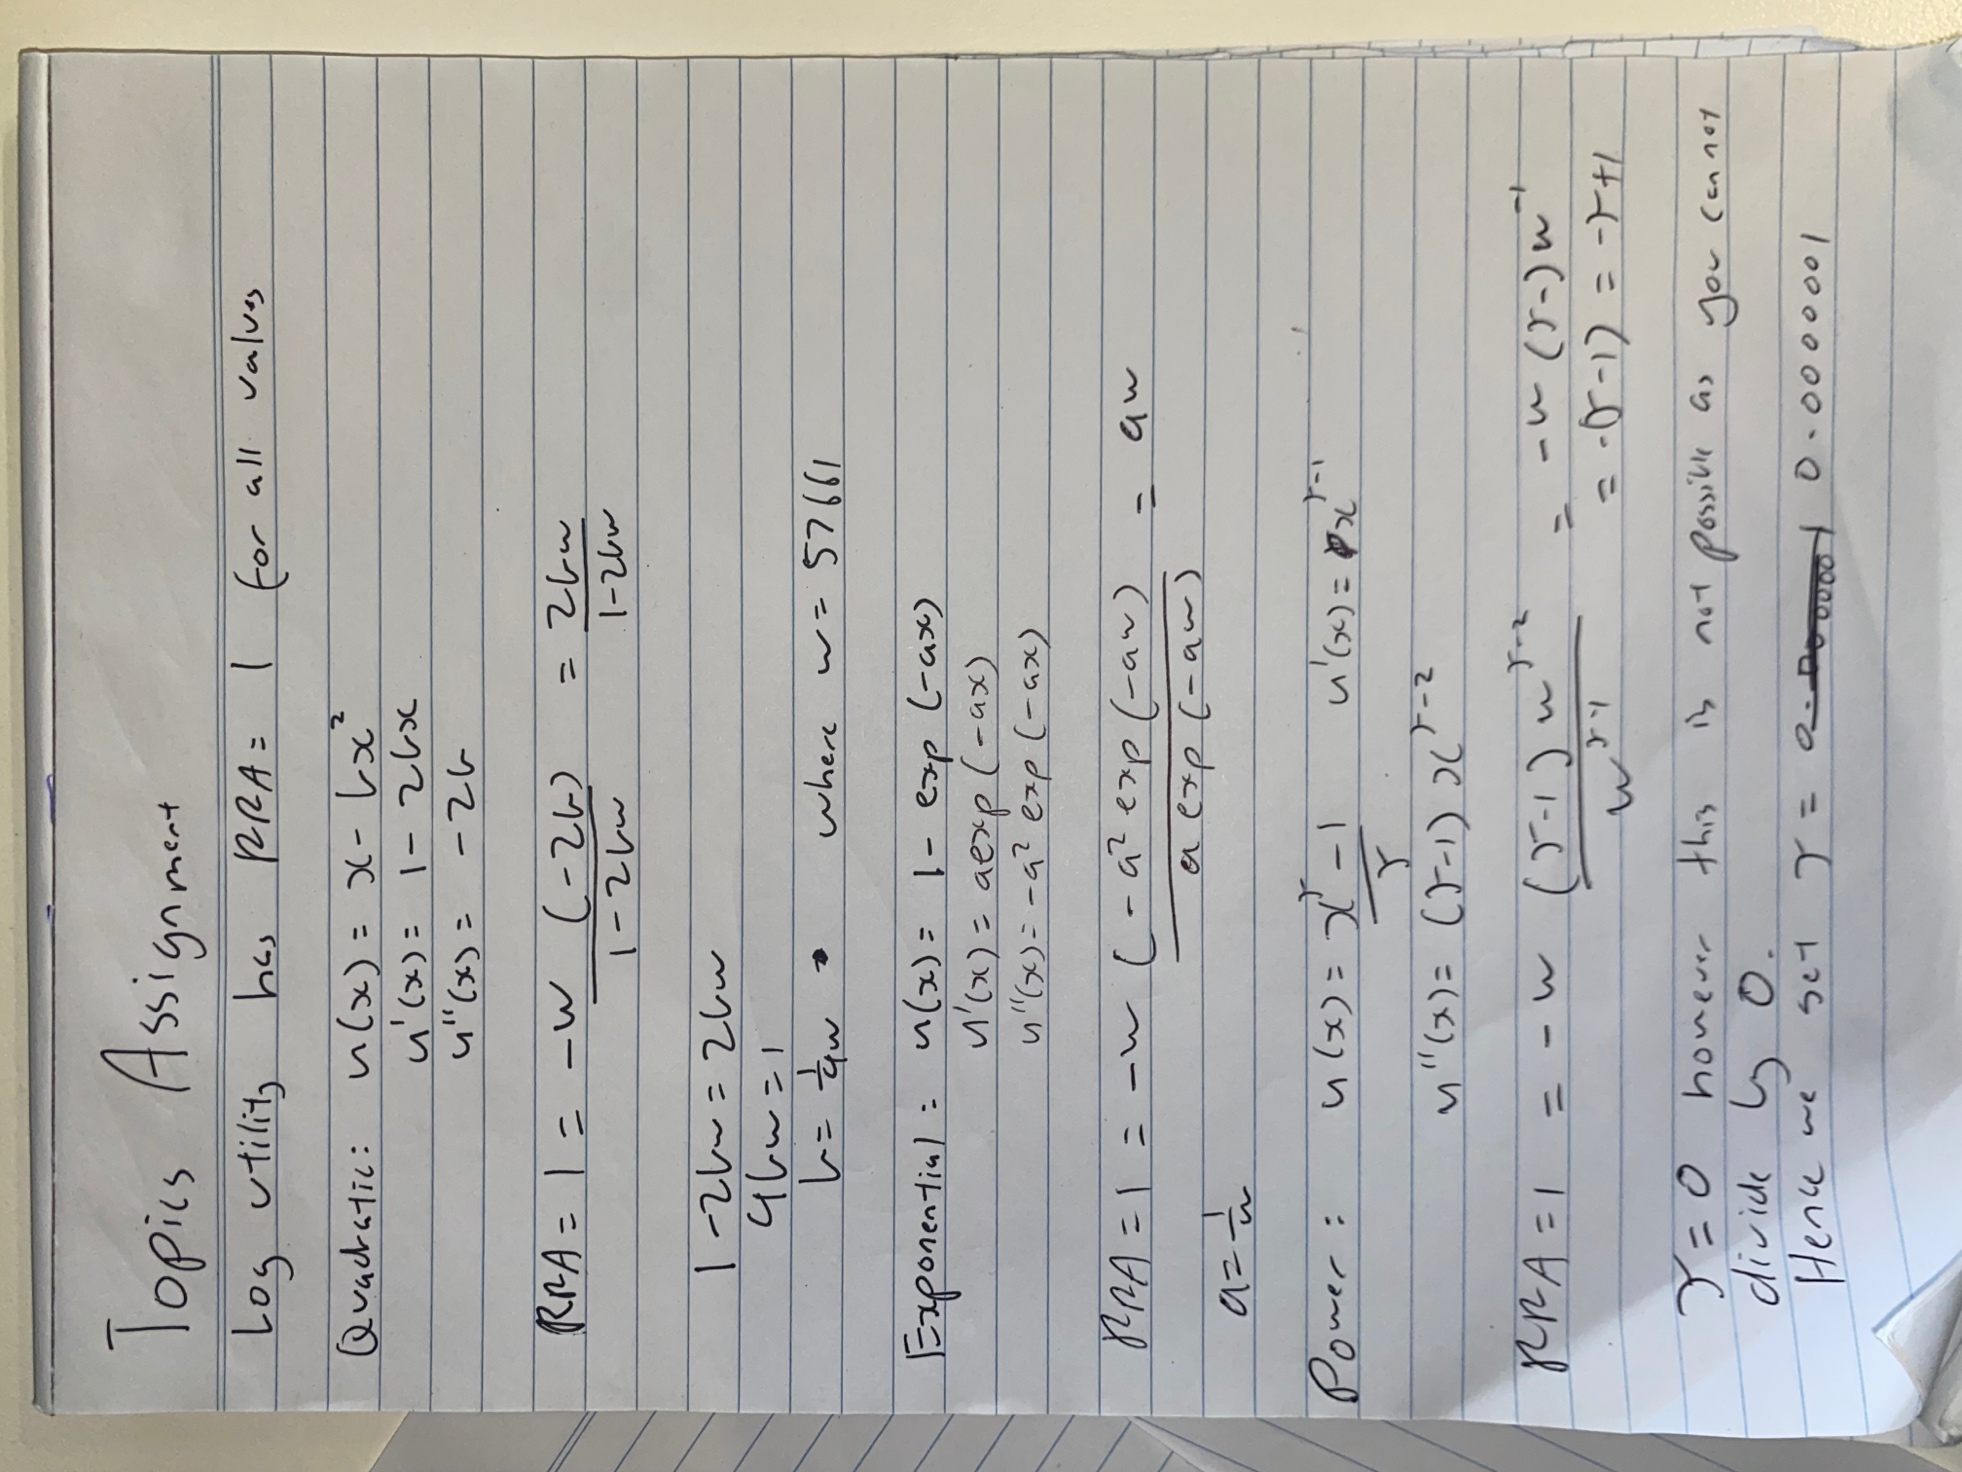 Topics Assignment
Log utility has RRA = 1 for all values
Quadratic: u(x) = x - bx²
u'(x) = 1 - 2bx
u''(x) = -2b
RRA = 1 = -w (-2b)/(1-2bw) = 2bw/(1-2bw)
1 - 2bw = 2bw
4bw = 1
b = 1/4w where w = 57661
Exponential: u(x) = 1 - exp(-ax)
u'(x) = a exp(-ax)
u''(x) = -a² exp(-ax)
RRA = 1 = -w (-a² exp(-aw))/(a exp(-aw)) = aw
a = 1/w
Power: u(x) = (x^γ - 1)/γ u'(x) = x^(γ-1)
u''(x) = (γ-1) x^(γ-2)
RRA = 1 = -w (γ-1) w^(γ-2)/w^(γ-1) = -w (γ-) w^-1
= -(γ-1) = -γ+1
γ = 0 however this is not possible as you cannot
divide by 0.
Hence we set γ = 0.00000001